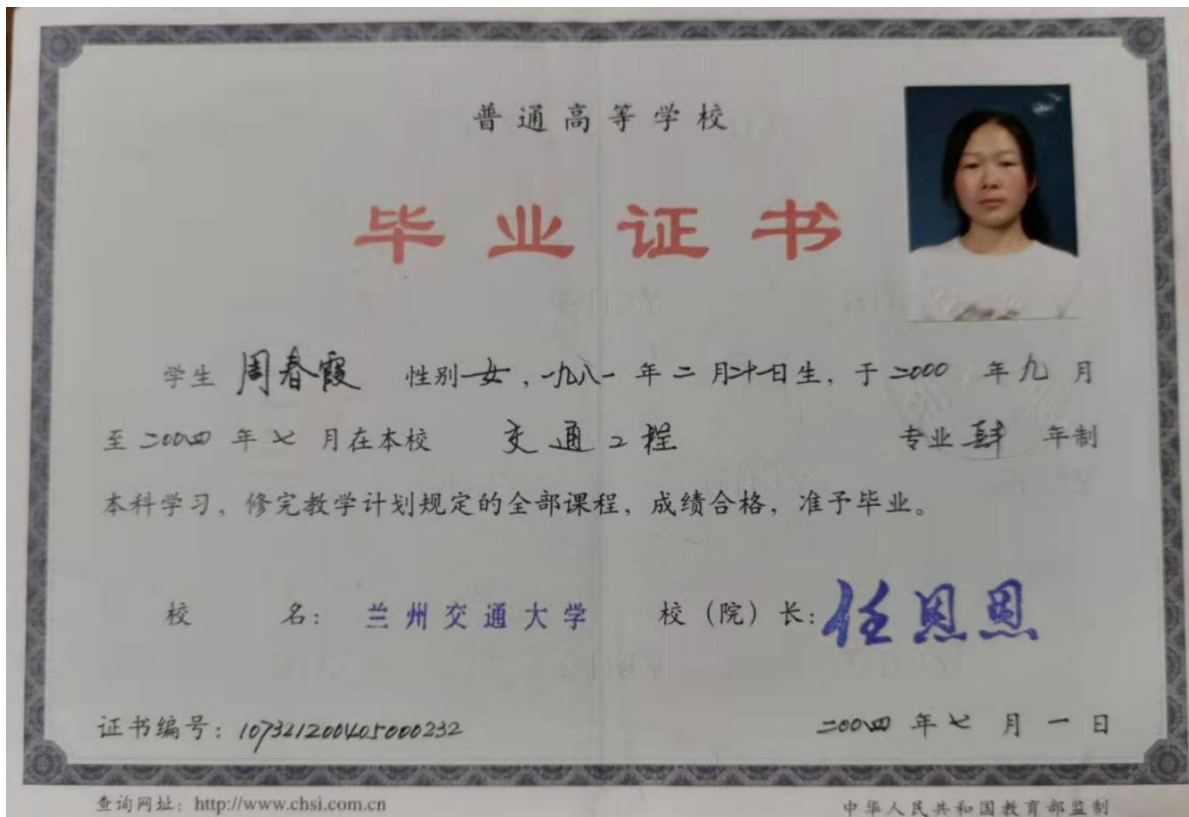 普通高等学校
毕业证书
学生 周春霞 性别 女，一九八一 年 二 月二十一日生，于 二000 年 九 月
至 二00四 年 七 月在本校 交通工程 专业 肆 年制
本科学习，修完教学计划规定的全部课程，成绩合格，准予毕业。
校 名：兰州交通大学 校（院）长：任恩恩
证书编号：107321200405000232 二00四 年 七 月 一 日
查询网址：http://www.chsi.com.cn 中华人民共和国教育部监制